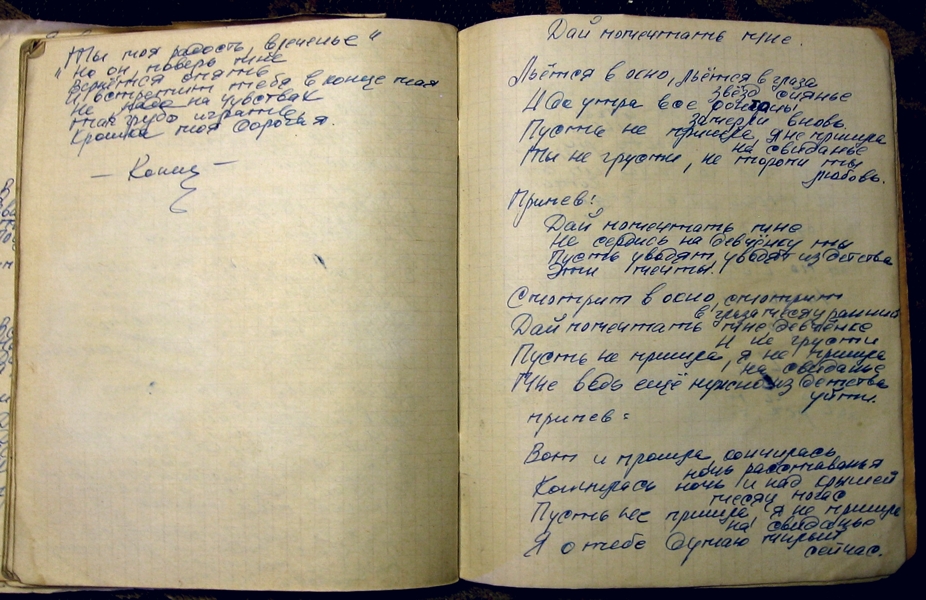 Ты моя радость, влеченье"
"Но он, поверь мне
Вернётся опять
И встретит тебя в конце мая
Не надо на чувствах
так грубо играть
Крошка моя дорогая.
— Конец —
Дай помечтать мне.
Льётся в окно, льётся в глаза
звёзд сиянье
И до утра все
зачерки вновь
Пусть не пришла, я не пришла
на свиданье
Ты не грусти, не торопи ты
любовь.
Припев:
Дай помечтать мне
Не сердись на девчёнку ты
Пусть уводят, уводят из детства
Эти мечты.
Смотрит в окно, смотрит
в глаза месяц ранний
Дай помечтать мне девчёнке
И не грусти
Пусть не пришла, я не пришла
на свиданье
Мне ведь ещё нужно из детства
уйти.
припев:
Вот и прошла, кончилась
ночь расставанья
Кончилась ночь и над крышей
месяц погас
Пусть не пришла, я не пришла
на свиданью
Я о тебе думаю милый
сейчас.